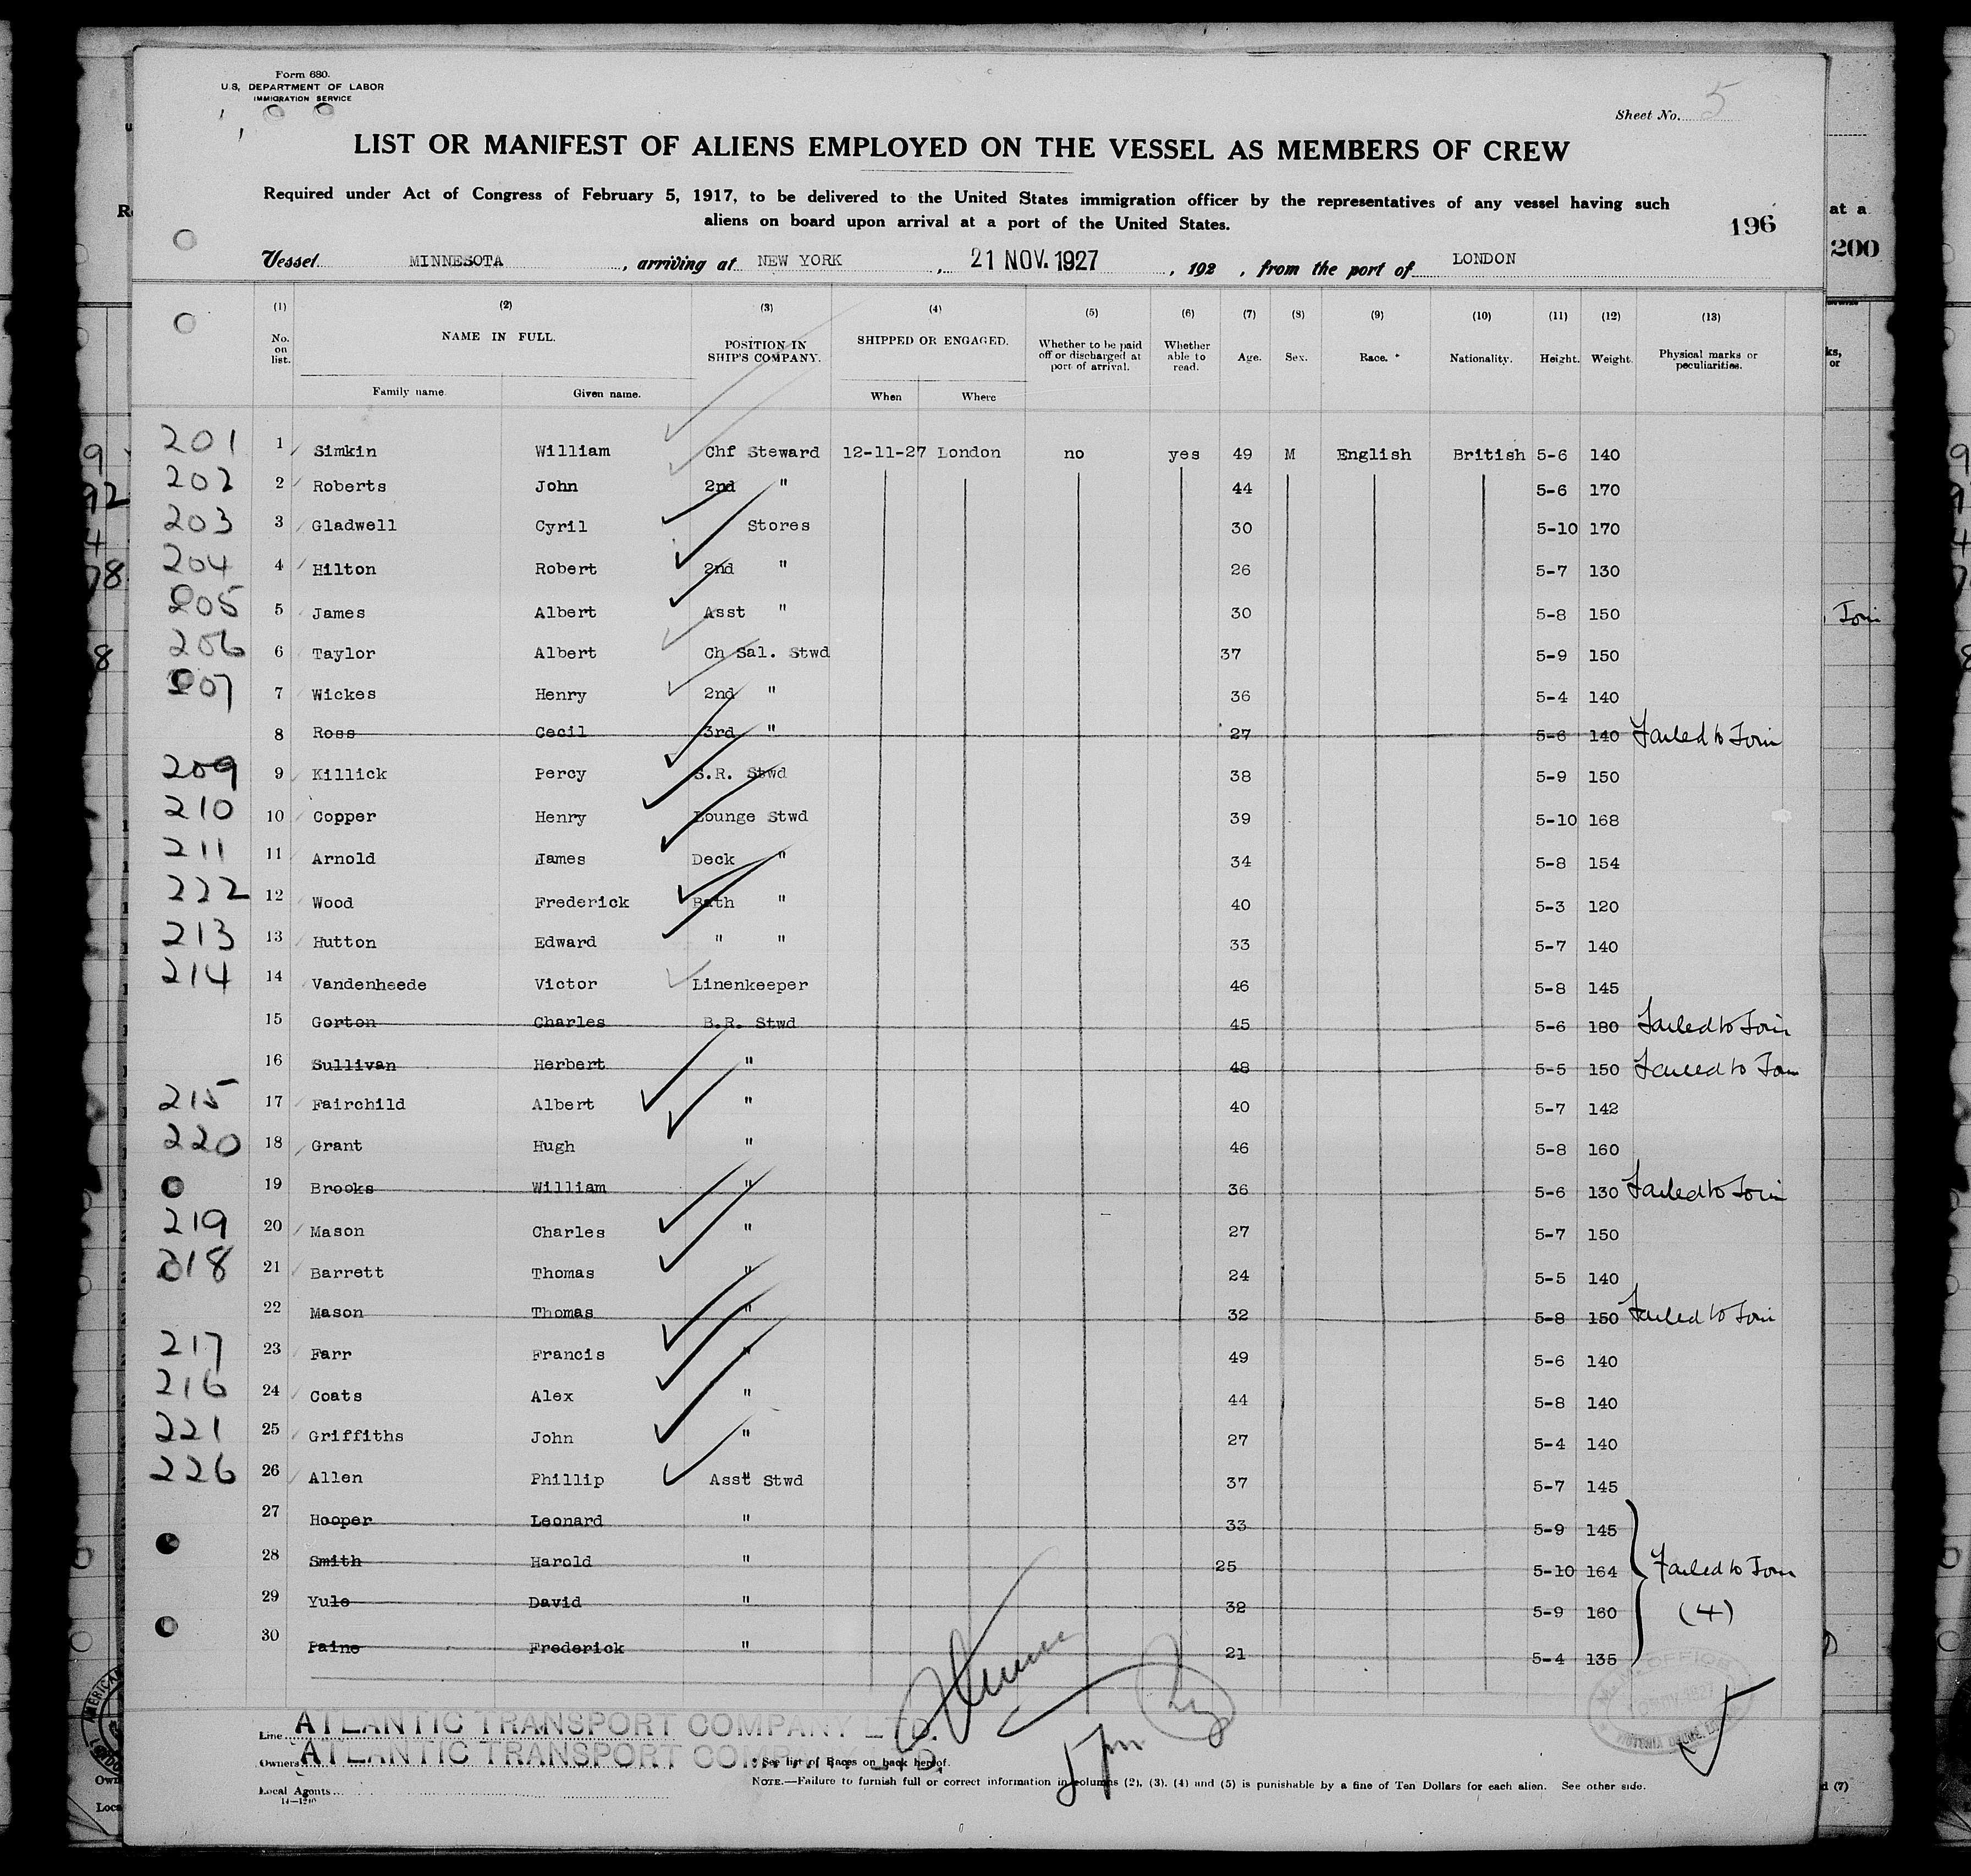 Form 680.
U.S. DEPARTMENT OF LABOR
IMMIGRATION SERVICE
Sheet No. 5
LIST OR MANIFEST OF ALIENS EMPLOYED ON THE VESSEL AS MEMBERS OF CREW
Required under Act of Congress of February 5, 1917, to be delivered to the United States immigration officer by the representatives of any vessel having such
aliens on board upon arrival at a port of the United States.
196
at a
200
Vessel MINNESOTA, arriving at NEW YORK, 21 NOV. 1927, 192 , from the port of LONDON
(1) (2) (3) (4) (5) (6) (7) (8) (9) (10) (11) (12) (13)
No. on list. NAME IN FULL. POSITION IN SHIP'S COMPANY. SHIPPED OR ENGAGED. Whether to be paid off or discharged at port of arrival. Whether able to read. Age. Sex. Race. * Nationality. Height. Weight. Physical marks or peculiarities.
Family name. Given name. When Where
201 1 Simkin William Chf Steward 12-11-27 London no yes 49 M English British 5-6 140
202 2 Roberts John 2nd " 44 5-6 170
203 3 Gladwell Cyril Stores 30 5-10 170
204 4 Hilton Robert 2nd " 26 5-7 130
205 5 James Albert Asst " 30 5-8 150
206 6 Taylor Albert Ch Sal. Stwd 37 5-9 150
207 7 Wickes Henry 2nd " 36 5-4 140
8 Ross Cecil 3rd " 27 5-6 140 Failed to Join
209 9 Killick Percy S.R. Stwd 38 5-9 150
210 10 Copper Henry Lounge Stwd 39 5-10 168
211 11 Arnold James Deck " 34 5-8 154
222 12 Wood Frederick Bath " 40 5-3 120
213 13 Hutton Edward " " 33 5-7 140
214 14 Vandenheede Victor Linenkeeper 46 5-8 145
15 Gorton Charles B.R. Stwd 45 5-6 180 Failed to Join
16 Sullivan Herbert " 48 5-5 150 Failed to Join
215 17 Fairchild Albert " 40 5-7 142
220 18 Grant Hugh " 46 5-8 160
19 Brooks William " 36 5-6 130 Failed to Join
219 20 Mason Charles " 27 5-7 150
218 21 Barrett Thomas " 24 5-5 140
22 Mason Thomas " 32 5-8 150 Failed to Join
217 23 Farr Francis " 49 5-6 140
216 24 Coats Alex " 44 5-8 140
221 25 Griffiths John " 27 5-4 140
226 26 Allen Phillip Asst Stwd 37 5-7 145
27 Hooper Leonard " 33 5-9 145
28 Smith Harold " 25 5-10 164 Failed to Join
29 Yule David " 32 5-9 160 (4)
30 Paine Frederick " 21 5-4 135
Line ATLANTIC TRANSPORT COMPANY LTD.
Owners ATLANTIC TRANSPORT COMPANY LTD.
* See list of Races on back hereof.
5 pm
Local Agents
NOTE.—Failure to furnish full or correct information in columns (2), (3), (4) and (5) is punishable by a fine of Ten Dollars for each alien. See other side.
14—1240